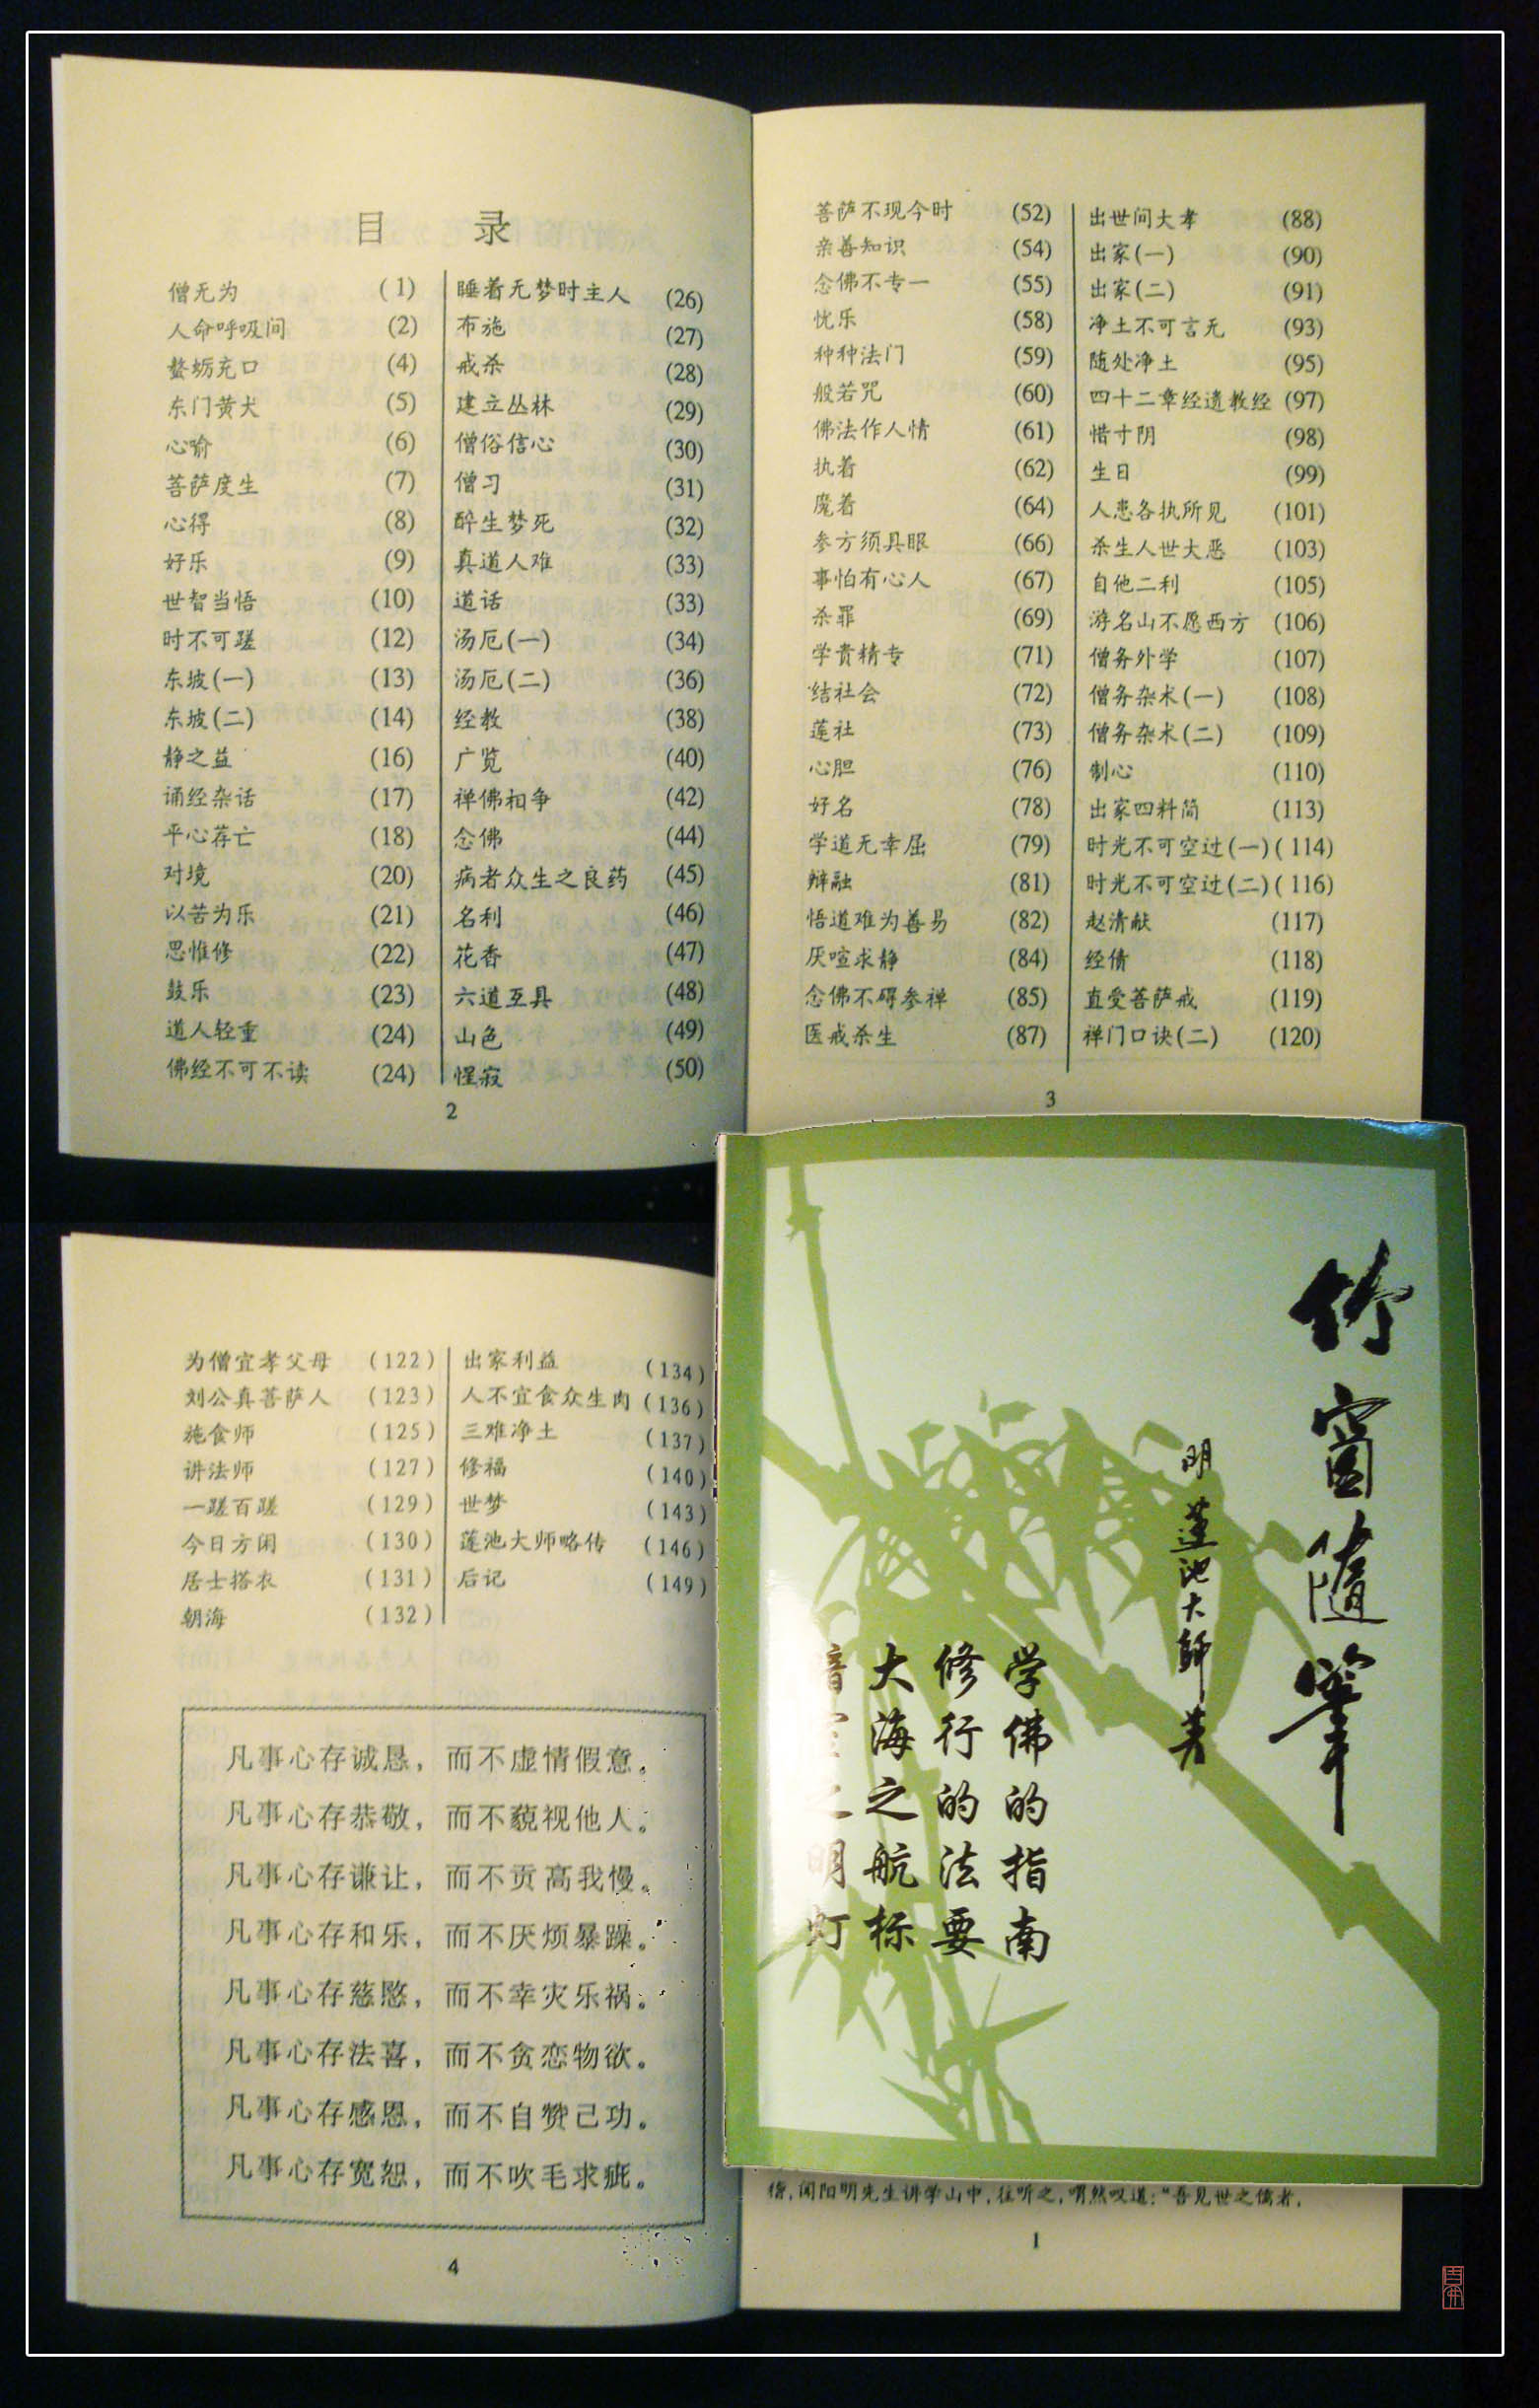 目 录
僧无为 (1)
人命呼吸间 (2)
蝥蛎充口 (4)
东门黄犬 (5)
心喻 (6)
菩萨度生 (7)
心得 (8)
好乐 (9)
世智当悟 (10)
时不可蹉 (12)
东坡(一) (13)
东坡(二) (14)
静之益 (16)
诵经杂话 (17)
平心荐亡 (18)
对境 (20)
以苦为乐 (21)
思惟修 (22)
鼓乐 (23)
道人轻重 (24)
佛经不可不读 (24)
睡着无梦时主人 (26)
布施 (27)
戒杀 (28)
建立丛林 (29)
僧俗信心 (30)
僧习 (31)
醉生梦死 (32)
真道人难 (33)
道话 (33)
汤厄(一) (34)
汤厄(二) (36)
经教 (38)
广览 (40)
禅佛相争 (42)
念佛 (44)
病者众生之良药 (45)
名利 (46)
花香 (47)
六道互具 (48)
山色 (49)
惺寂 (50)
2
菩萨不现今时 (52)
亲善知识 (54)
念佛不专一 (55)
忧乐 (58)
种种法门 (59)
般若咒 (60)
佛法作人情 (61)
执着 (62)
魔着 (64)
参方须具眼 (66)
事怕有心人 (67)
杀罪 (69)
学贵精专 (71)
结社会 (72)
莲社 (73)
心胆 (76)
好名 (78)
学道无幸屈 (79)
辩融 (81)
悟道难为善易 (82)
厌喧求静 (84)
念佛不碍参禅 (85)
医戒杀生 (87)
出世间大孝 (88)
出家(一) (90)
出家(二) (91)
净土不可言无 (93)
随处净土 (95)
四十二章经遗教经 (97)
惜寸阴 (98)
生日 (99)
人患各执所见 (101)
杀生人世大恶 (103)
自他二利 (105)
游名山不愿西方 (106)
僧务外学 (107)
僧务杂术(一) (108)
僧务杂术(二) (109)
制心 (110)
出家四料简 (113)
时光不可空过(一) (114)
时光不可空过(二) (116)
赵清献 (117)
经债 (118)
直受菩萨戒 (119)
禅门口诀(二) (120)
3
为僧宜孝父母 (122)
刘公真菩萨人 (123)
施食师 (125)
讲法师 (127)
一蹉百蹉 (129)
今日方闲 (130)
居士搭衣 (131)
朝海 (132)
出家利益 (134)
人不宜食众生肉 (136)
三难净土 (137)
修福 (140)
世梦 (143)
莲池大师略传 (146)
后记 (149)
凡事心存诚恳，而不虚情假意。
凡事心存恭敬，而不藐视他人。
凡事心存谦让，而不贡高我慢。
凡事心存和乐，而不厌烦暴躁。
凡事心存慈愍，而不幸灾乐祸。
凡事心存法喜，而不贪恋物欲。
凡事心存感恩，而不自赞己功。
凡事心存宽恕，而不吹毛求疵。
4
竹窗隨筆
明 蓮池大師 著
学佛的指南
修行的法要
大海之航标
暗室之明灯
偕，闻阳明先生讲学山中，往听之，喟然叹道：“吾见世之儒者，
1